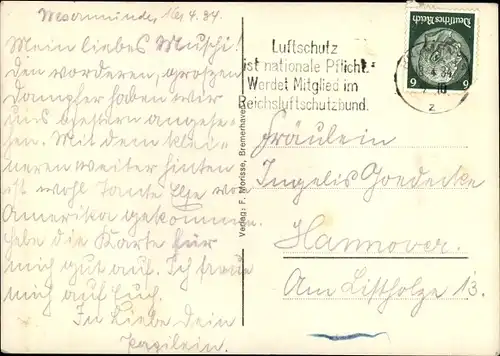 Wesermünde, 4.34.
Mein liebes Muschi!
Den vorderen, großen
Dampfer haben wir
uns gestern angese-
hen. Mit dem klei-
neren weiter hinten
ist wohl Tante Else von
Amerika gekommen.
Hebe die Karte für
mich gut auf. Ich freue
mich auf Euch.
In Liebe Dein
Papilein.
Verlag: F. Morisse, Bremerhaven
Luftschutz
ist nationale Pflicht.
Werdet Mitglied im
Reichsluftschutzbund.
Deutsches Reich
6 6
4 34
Fräulein
Ingelis Goedecke
Hannover.
Am Listholze 13.